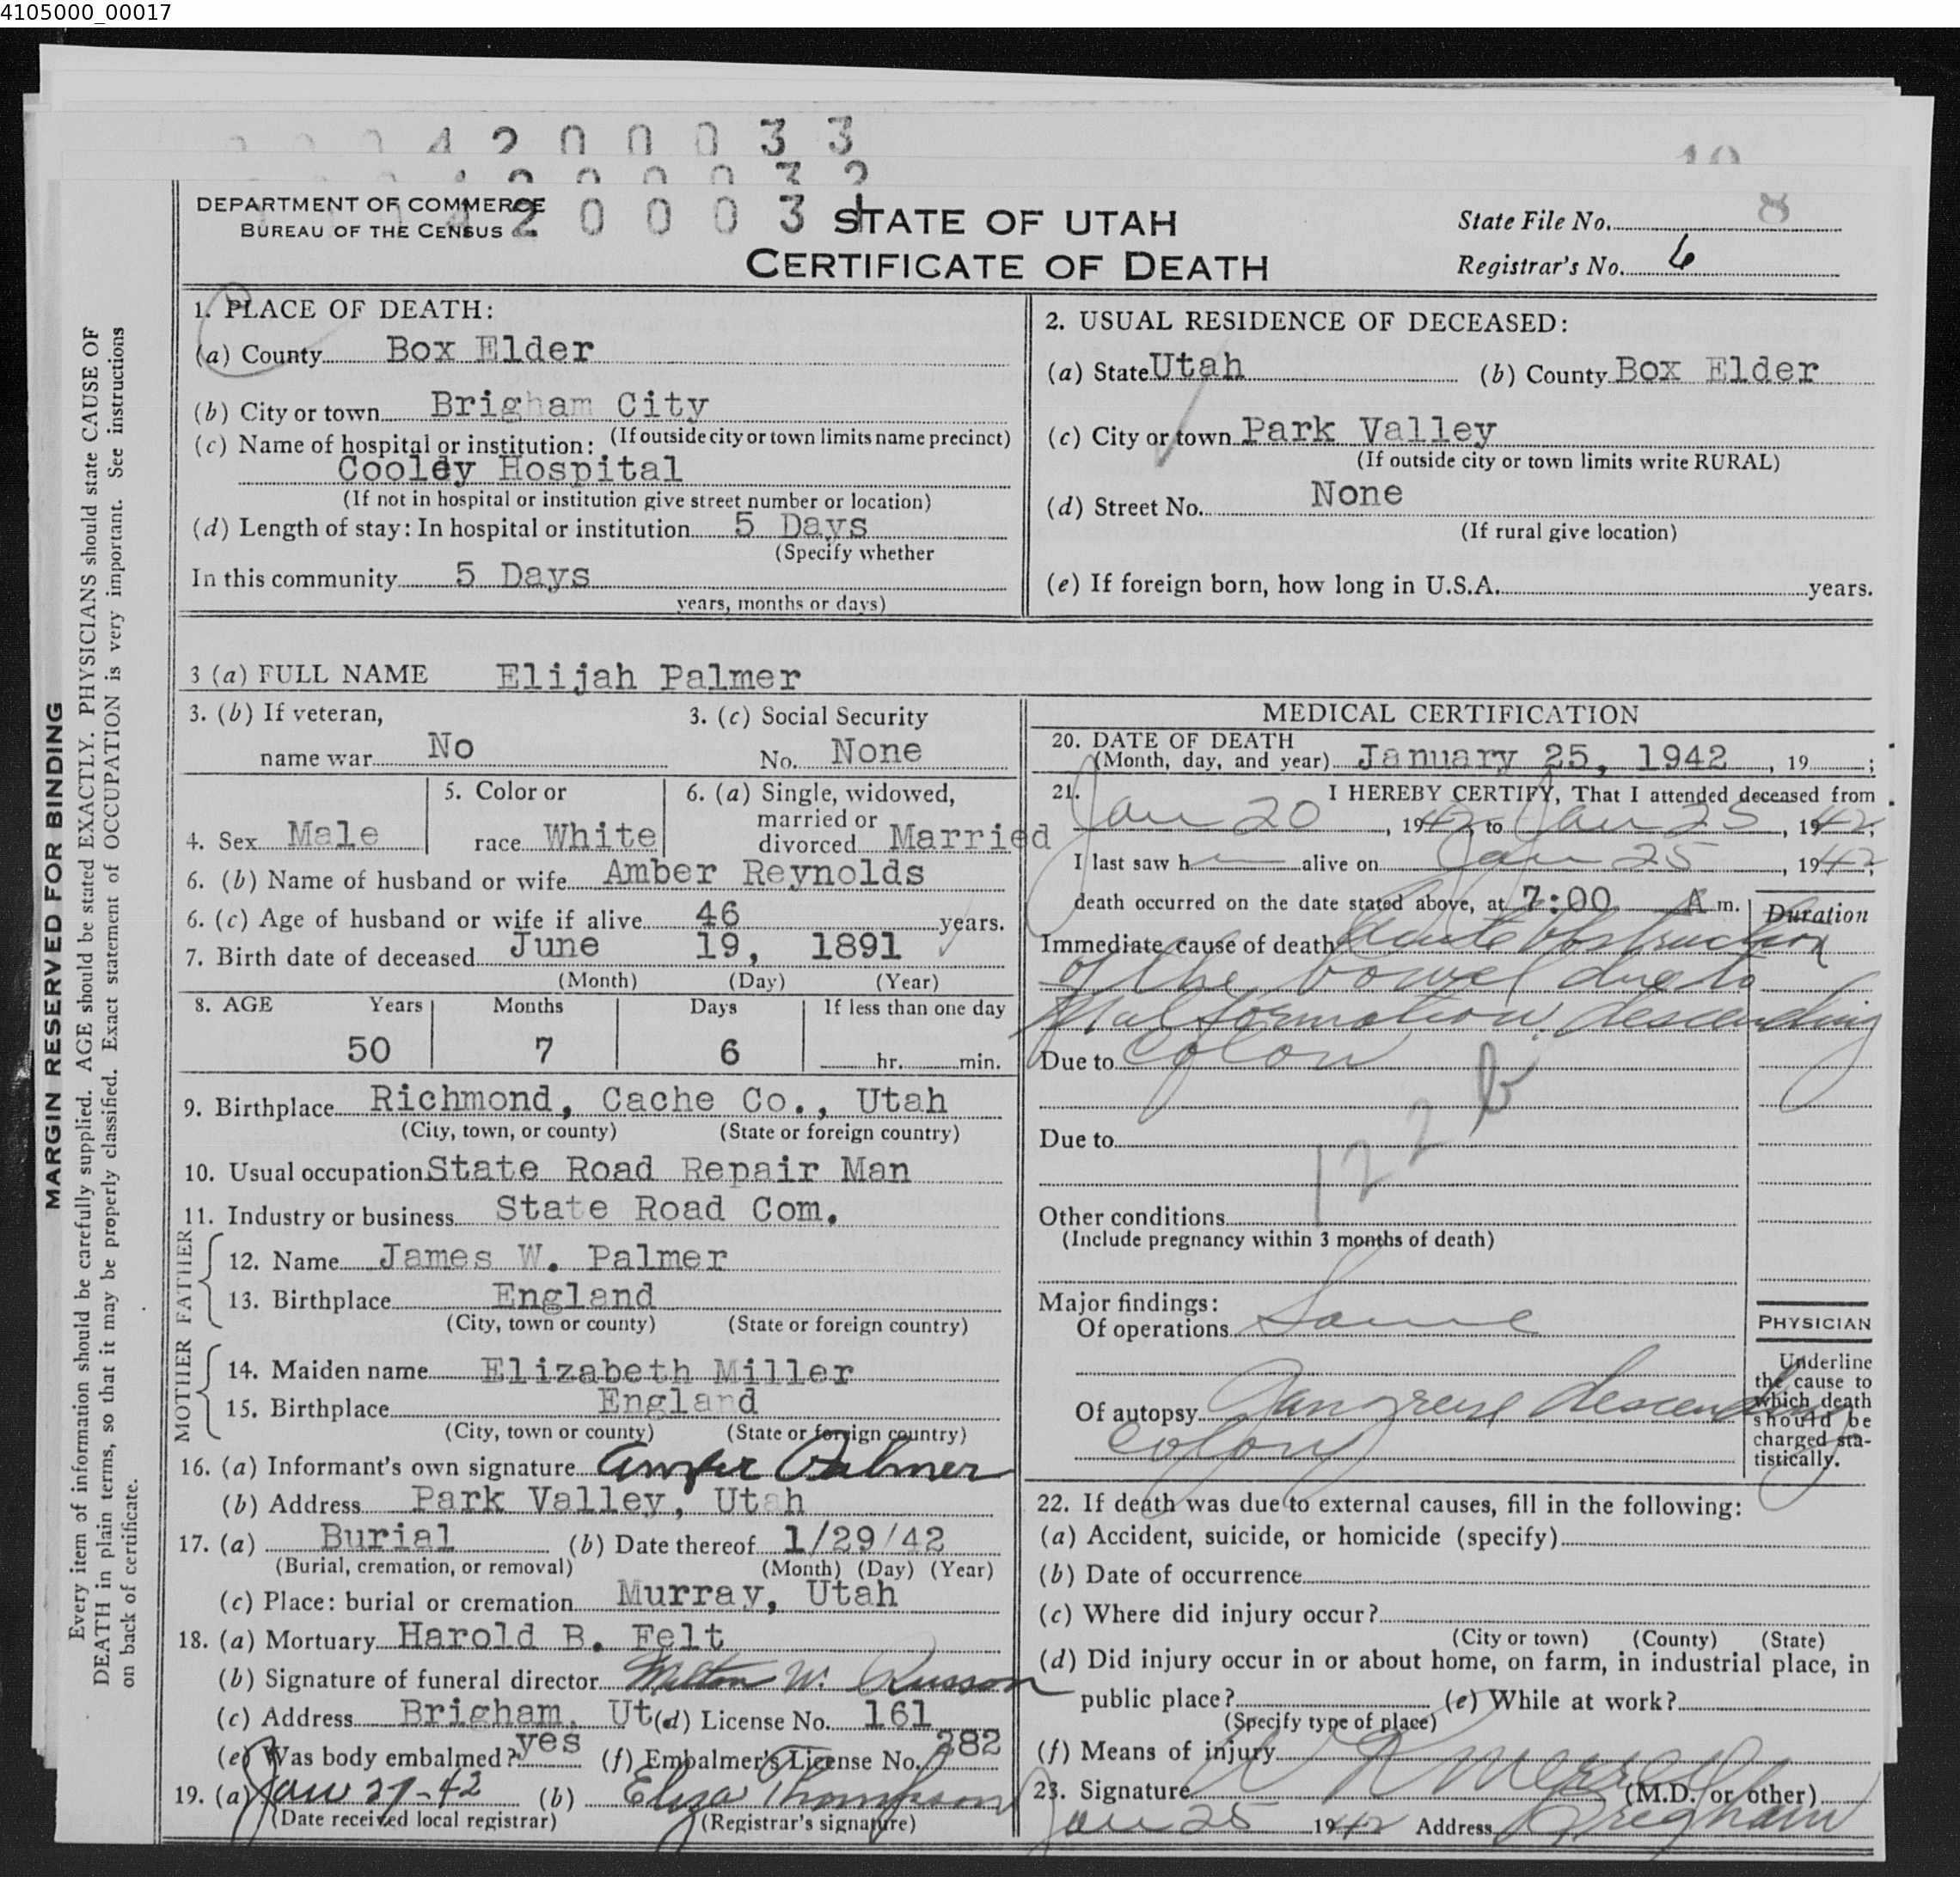 4105000_00017
4 2 0 0 0 3 3
10
2 0 0 0 3 2
DEPARTMENT OF COMMERCE
BUREAU OF THE CENSUS
2 0 0 0 3 1
STATE OF UTAH
CERTIFICATE OF DEATH
State File No. 8
Registrar's No. 6
MARGIN RESERVED FOR BINDING
Every item of information should be carefully supplied. AGE should be stated EXACTLY. PHYSICIANS should state CAUSE OF
DEATH in plain terms, so that it may be properly classified. Exact statement of OCCUPATION is very important. See instructions
on back of certificate.
1. PLACE OF DEATH:
(a) County Box Elder
(b) City or town Brigham City
(If outside city or town limits name precinct)
(c) Name of hospital or institution:
Cooldy Hospital
(If not in hospital or institution give street number or location)
(d) Length of stay: In hospital or institution 5 Days
(Specify whether
In this community 5 Days
years, months or days)
2. USUAL RESIDENCE OF DECEASED:
(a) State Utah (b) County Box Elder
(c) City or town Park Valley
(If outside city or town limits write RURAL)
(d) Street No. None
(If rural give location)
(e) If foreign born, how long in U.S.A. years.
3 (a) FULL NAME Elijah Palmer
3. (b) If veteran,
name war No
3. (c) Social Security
No. None
4. Sex Male
5. Color or
race White
6. (a) Single, widowed,
married or
divorced Married
6. (b) Name of husband or wife Amber Reynolds
6. (c) Age of husband or wife if alive 46 years.
7. Birth date of deceased June 19, 1891
(Month) (Day) (Year)
8. AGE Years Months Days If less than one day
50 7 6 hr. min.
9. Birthplace Richmond, Cache Co., Utah
(City, town, or county) (State or foreign country)
10. Usual occupation State Road Repair Man
11. Industry or business State Road Com.
FATHER
12. Name James W. Palmer
13. Birthplace England
(City, town or county) (State or foreign country)
MOTHER
14. Maiden name Elizabeth Miller
15. Birthplace England
(City, town or county) (State or foreign country)
16. (a) Informant's own signature Amber Palmer
(b) Address Park Valley, Utah
17. (a) Burial (b) Date thereof 1/29/42
(Burial, cremation, or removal) (Month) (Day) (Year)
(c) Place: burial or cremation Murray, Utah
18. (a) Mortuary Harold B. Felt
(b) Signature of funeral director Milton W. Russon
(c) Address Brigham, Ut (d) License No. 161
(e) Was body embalmed? yes (f) Embalmer's License No. 282
19. (a) Jan 27-42 (b) Eliza Thompson
(Date received local registrar) (Registrar's signature)
MEDICAL CERTIFICATION
20. DATE OF DEATH
(Month, day, and year) January 25, 1942, 19 ;
21. I HEREBY CERTIFY, That I attended deceased from
Jan 20, 1942, to Jan 25, 1942;
I last saw h alive on Jan 25, 1942;
death occurred on the date stated above, at 7:00 A m.
Duration
Immediate cause of death Acute Obstruction
of the bowel due to
Malformation descending
Due to colon
122 b
Due to
Other conditions
(Include pregnancy within 3 months of death)
Major findings:
Of operations Same
Of autopsy Gangrene descending
colon
PHYSICIAN
Underline
the cause to
which death
should be
charged sta-
tistically.
22. If death was due to external causes, fill in the following:
(a) Accident, suicide, or homicide (specify)
(b) Date of occurrence
(c) Where did injury occur?
(City or town) (County) (State)
(d) Did injury occur in or about home, on farm, in industrial place, in
public place? (e) While at work?
(Specify type of place)
(f) Means of injury
23. Signature W R Merrell (M.D. or other)
Jan 25 1942 Address Brigham